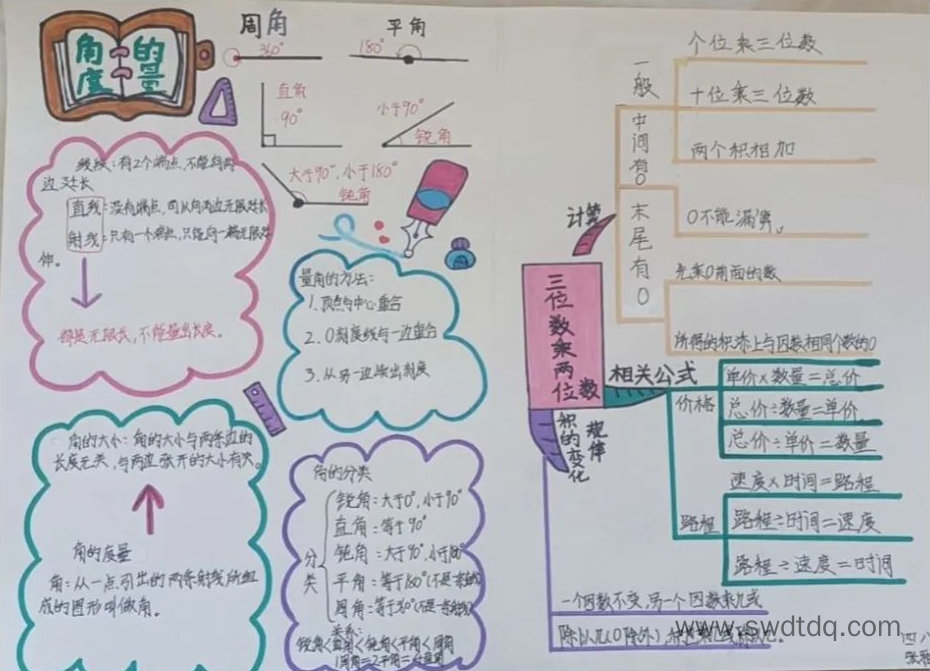 角的
度量
周角
360°
平角
180°
直角
90°
小于90°
锐角
大于90°,小于180°
钝角
线段:有2个端点,不能向两
边延长
直线:没有端点,可以向两边无限延长
射线:只有一个端点,只能向一端无限延
伸。
都是无限长,不能量出长度。
量角的方法:
1.顶点与中心重合
2.0刻度线与一边重合
3.从另一边读出刻度
角的大小:角的大小与两条边的
长度无关,与两边张开的大小有关。
角的度量
角:从一点引出的两条射线所组
成的图形叫做角。
角的分类
分类
锐角:大于0°,小于90°
直角:等于90°
钝角:大于90°,小于180°
平角:等于180°(不是直线)
周角:等于360°(不是一条射线)
关系:
锐角<直角<钝角<平角<周角
1周角=2平角=4直角
三位数乘两位数
计算
一般
个位乘三位数
十位乘三位数
两个积相加
中间有0
0不能漏乘。
末尾有0
先乘0前面的数
所得的积添上与因数相同个数的0
相关公式
价格
单价×数量=总价
总价÷数量=单价
总价÷单价=数量
路程
速度×时间=路程
路程÷时间=速度
路程÷速度=时间
积的变化规律
一个因数不变,另一个因数乘几或
除以几(0除外)
www.swdtdq.com